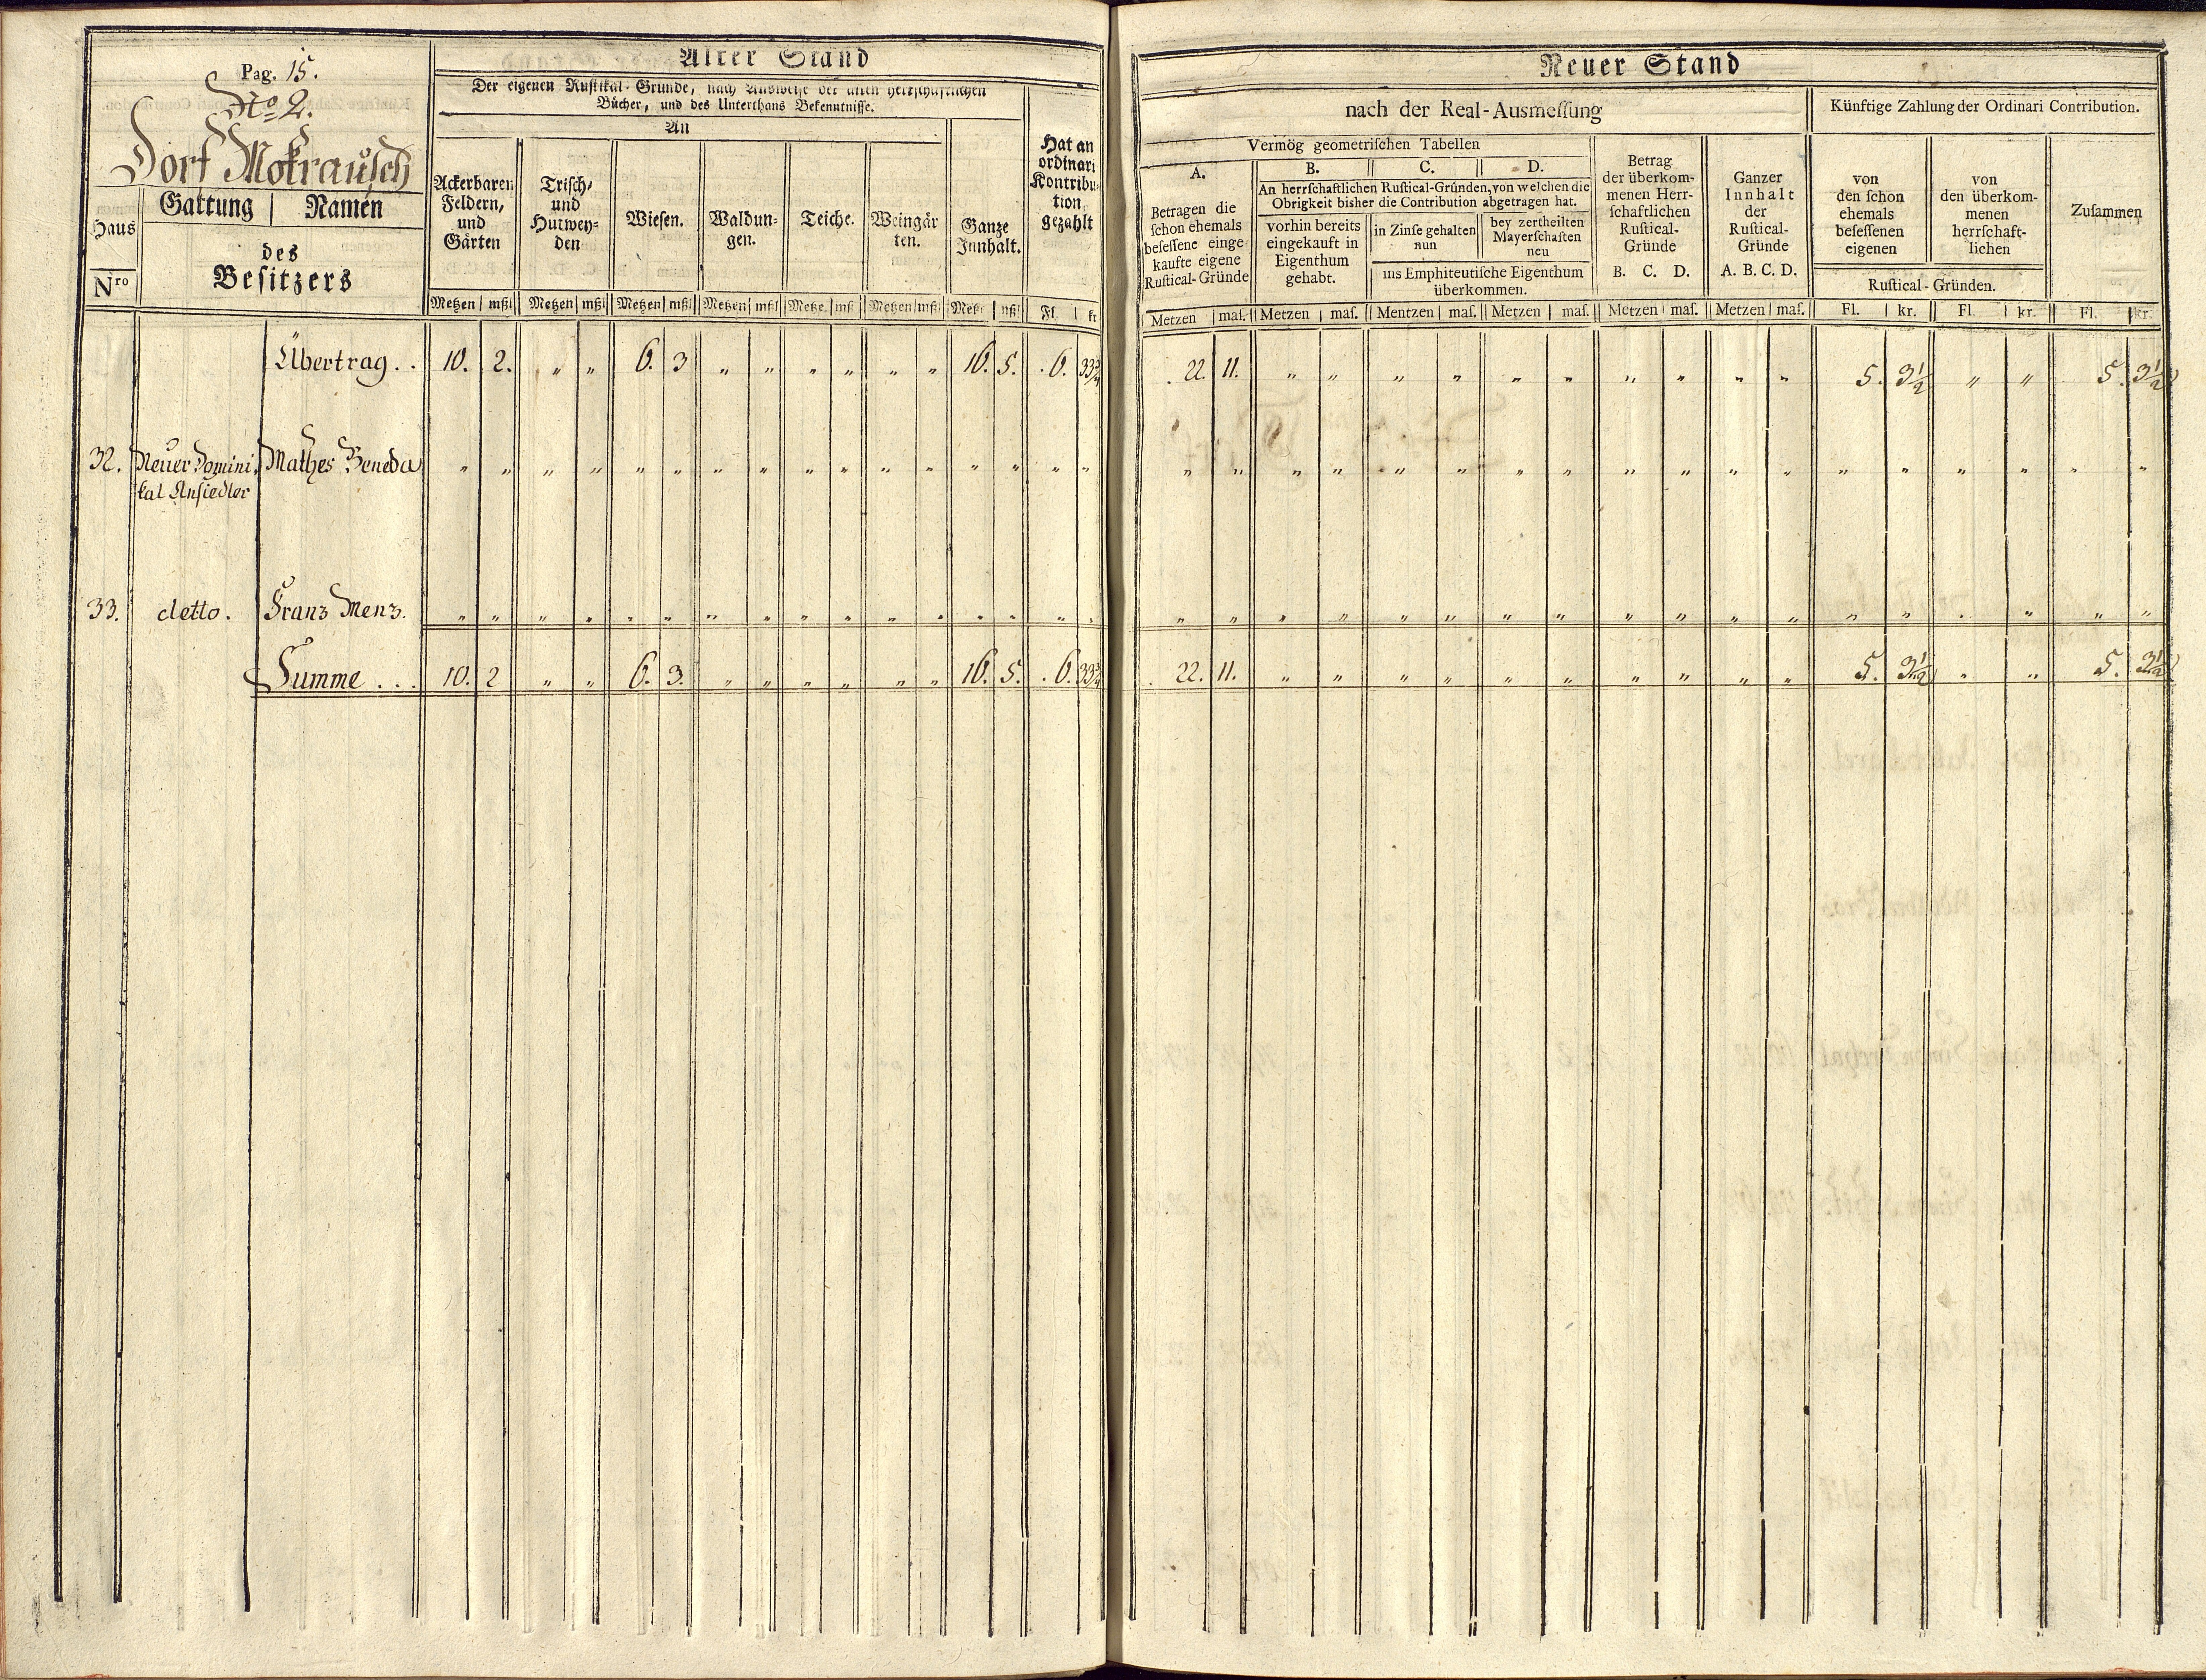 Pag. 15.
No 2.
Dorf Mokrausch
Haus Nro
Gattung | Namen
des
Besitzers
Alter Stand
Der eigenen Rustikal-Gründe, nach Ausweise der alten herrschaftlichen
Bücher, und des Unterthans Bekenntnisse.
An
Ackerbaren
Feldern,
und
Gärten
Trisch-
und
Hutwey-
den
Wiesen.
Waldun-
gen.
Teiche.
Weingär
ten.
Ganze
Innhalt.
Hat an
ordinari
Kontribu-
tion
gezahlt
Metzen | mßl Metzen | mßl Metzen | mßl Metzen | mßl Metze. | mßl Metzen | mßl Metze | mßl Fl. | kr
Übertrag . . 10. 2. „ „ 6. 3 „ „ „ „ „ „ 16. 5. . 6. 33¾
32. Neuer Domini- Mathes Beneda „ „ „ „ „ „ „ „ „ „ „ „ „ „ „ „
kal Ansiedler
33. detto. Franz Menz. „ „ „ „ „ „ „ „ „ „ „ „ „ „ „ „
Summe . . . 10. 2 „ „ 6. 3. „ „ „ „ „ „ 16. 5. . 6. 33¾
Neuer Stand
nach der Real-Ausmeſſung
Künftige Zahlung der Ordinari Contribution.
Vermög geometriſchen Tabellen
A.
Betragen die
ſchon ehemals
beſeſſene einge-
kaufte eigene
Ruſtical-Gründe
B. C. D.
An herrſchaftlichen Ruſtical-Gründen, von welchen die
Obrigkeit bisher die Contribution abgetragen hat.
vorhin bereits
eingekauft in
Eigenthum
gehabt.
in Zinſe gehalten
nun
bey zertheilten
Mayerſchaften
neu
ins Emphiteutiſche Eigenthum
überkommen.
Betrag
der überkom-
menen Herr-
ſchaftlichen
Ruſtical-
Gründe
B. C. D.
Ganzer
Innhalt
der
Ruſtical-
Gründe
A. B. C. D.
von
den ſchon
ehemals
beſeſſenen
eigenen
von
den überkom-
menen
herrſchaft-
lichen
Ruſtical-Gründen.
Zuſammen
Metzen | maſ. Metzen | maſ. Mentzen | maſ. Metzen | maſ. Metzen | maſ. Metzen | maſ. Fl. | kr. Fl. | kr. Fl. | kr.
. 22. 11. „ „ „ „ „ „ „ „ „ „ 5. 3½ „ „ 5. 3½
„ „ „ „ „ „ „ „ „ „ „ „ „ „ „ „ „ „
„ „ „ „ „ „ „ „ „ „ „ „ „ „ „ „ „ „
. 22. 11. „ „ „ „ „ „ „ „ „ „ 5. 3½ „ „ 5. 3½